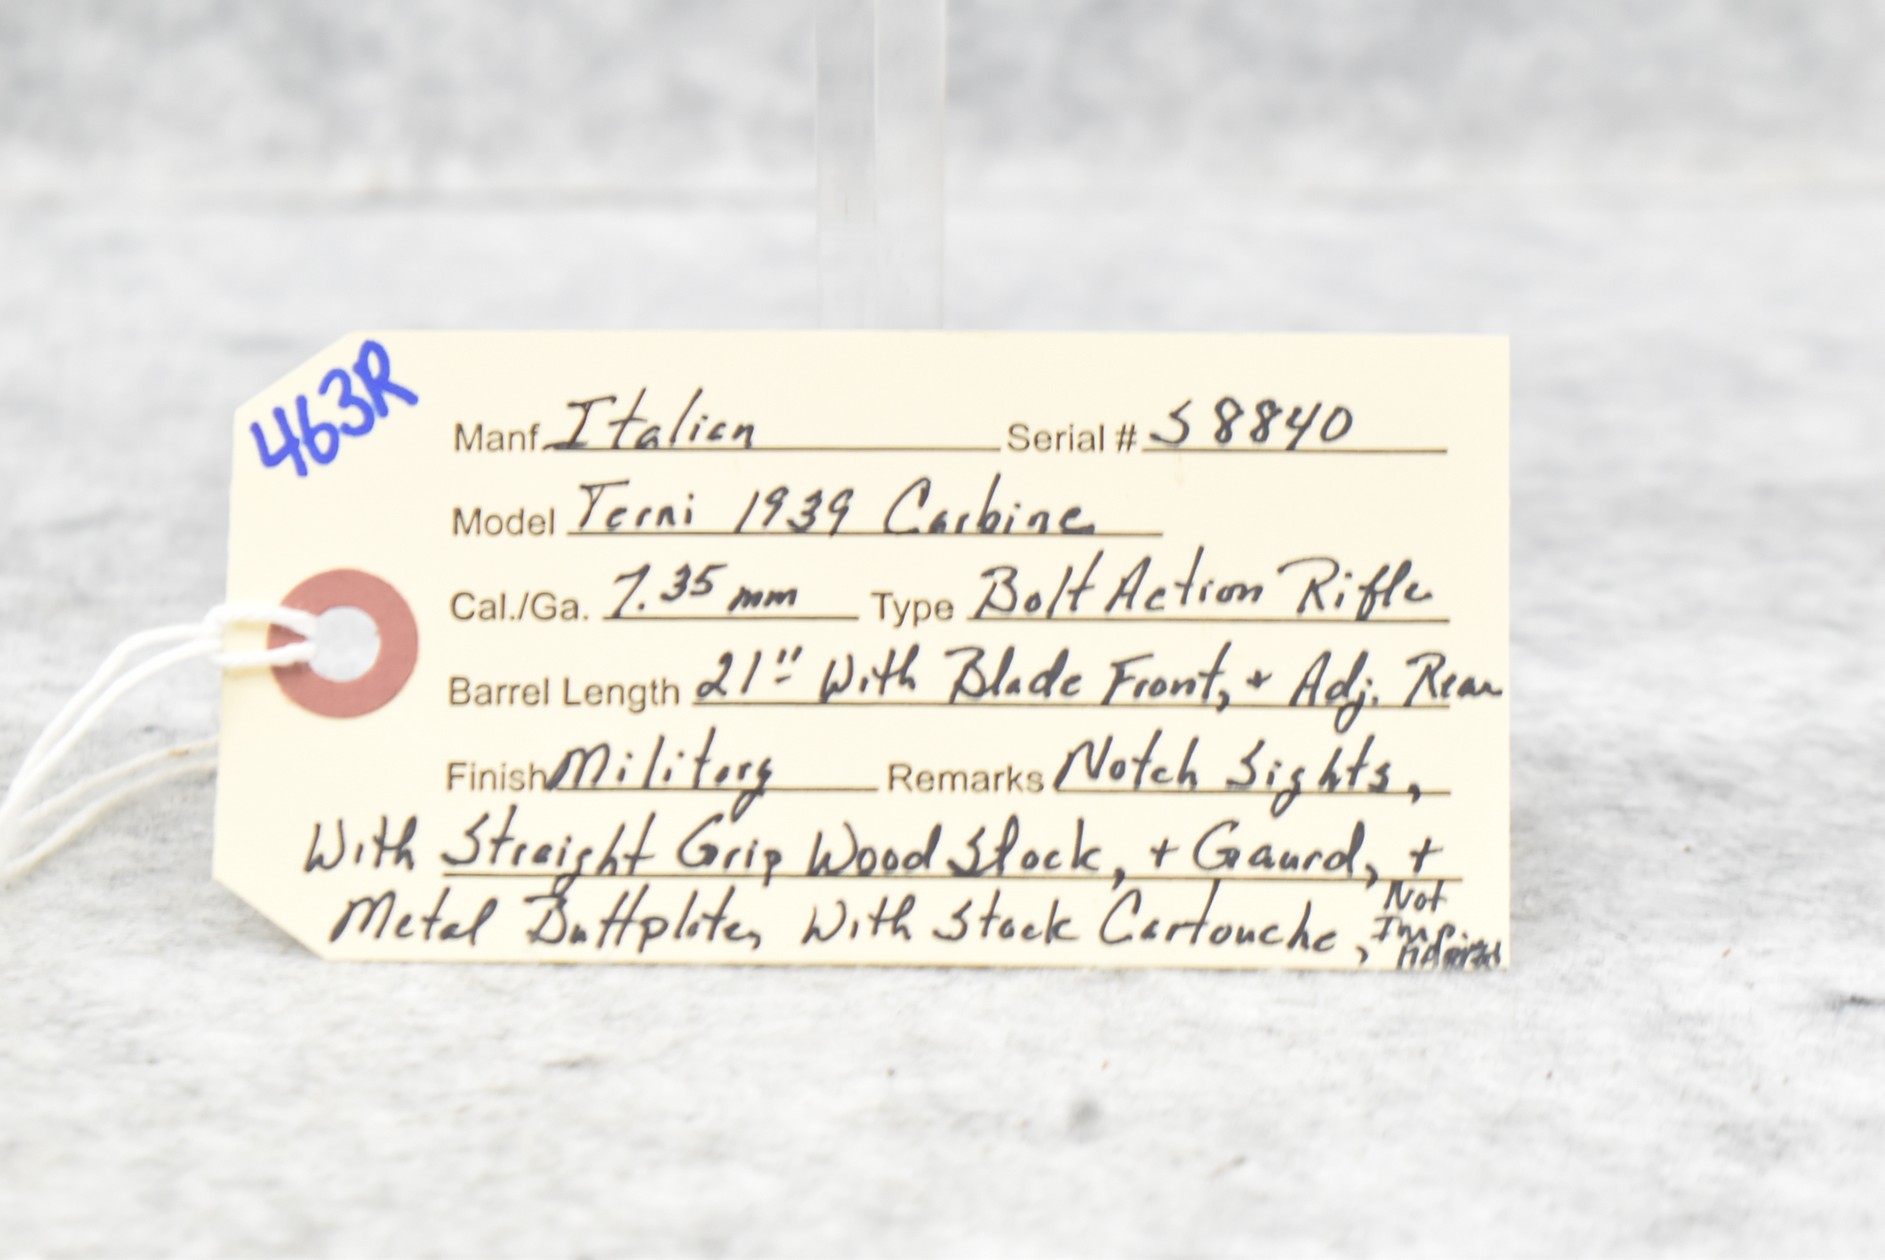 463R
Manf. Italian Serial # S8840
Model Terni 1939 Carbine
Cal./Ga. 7.35 mm Type Bolt Action Rifle
Barrel Length 21" With Blade Front, + Adj. Rear
Finish Military Remarks Notch Sights,
With Straight Grip Wood Stock, + Gaurd, +
Metal Buttplate, With Stock Cartouche, Not
Imp.